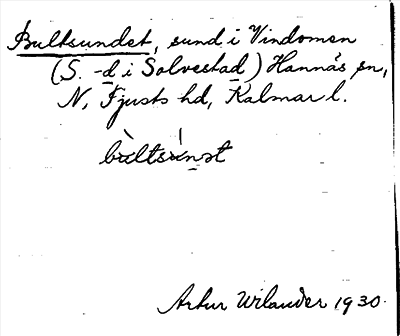 Bultsundet, sund i Vindomen
(S. -d i Solvestad) Hannäs sn,
N. Tjusts hd, Kalmar l.
bùltsúnət
Artur Wilander 1930.